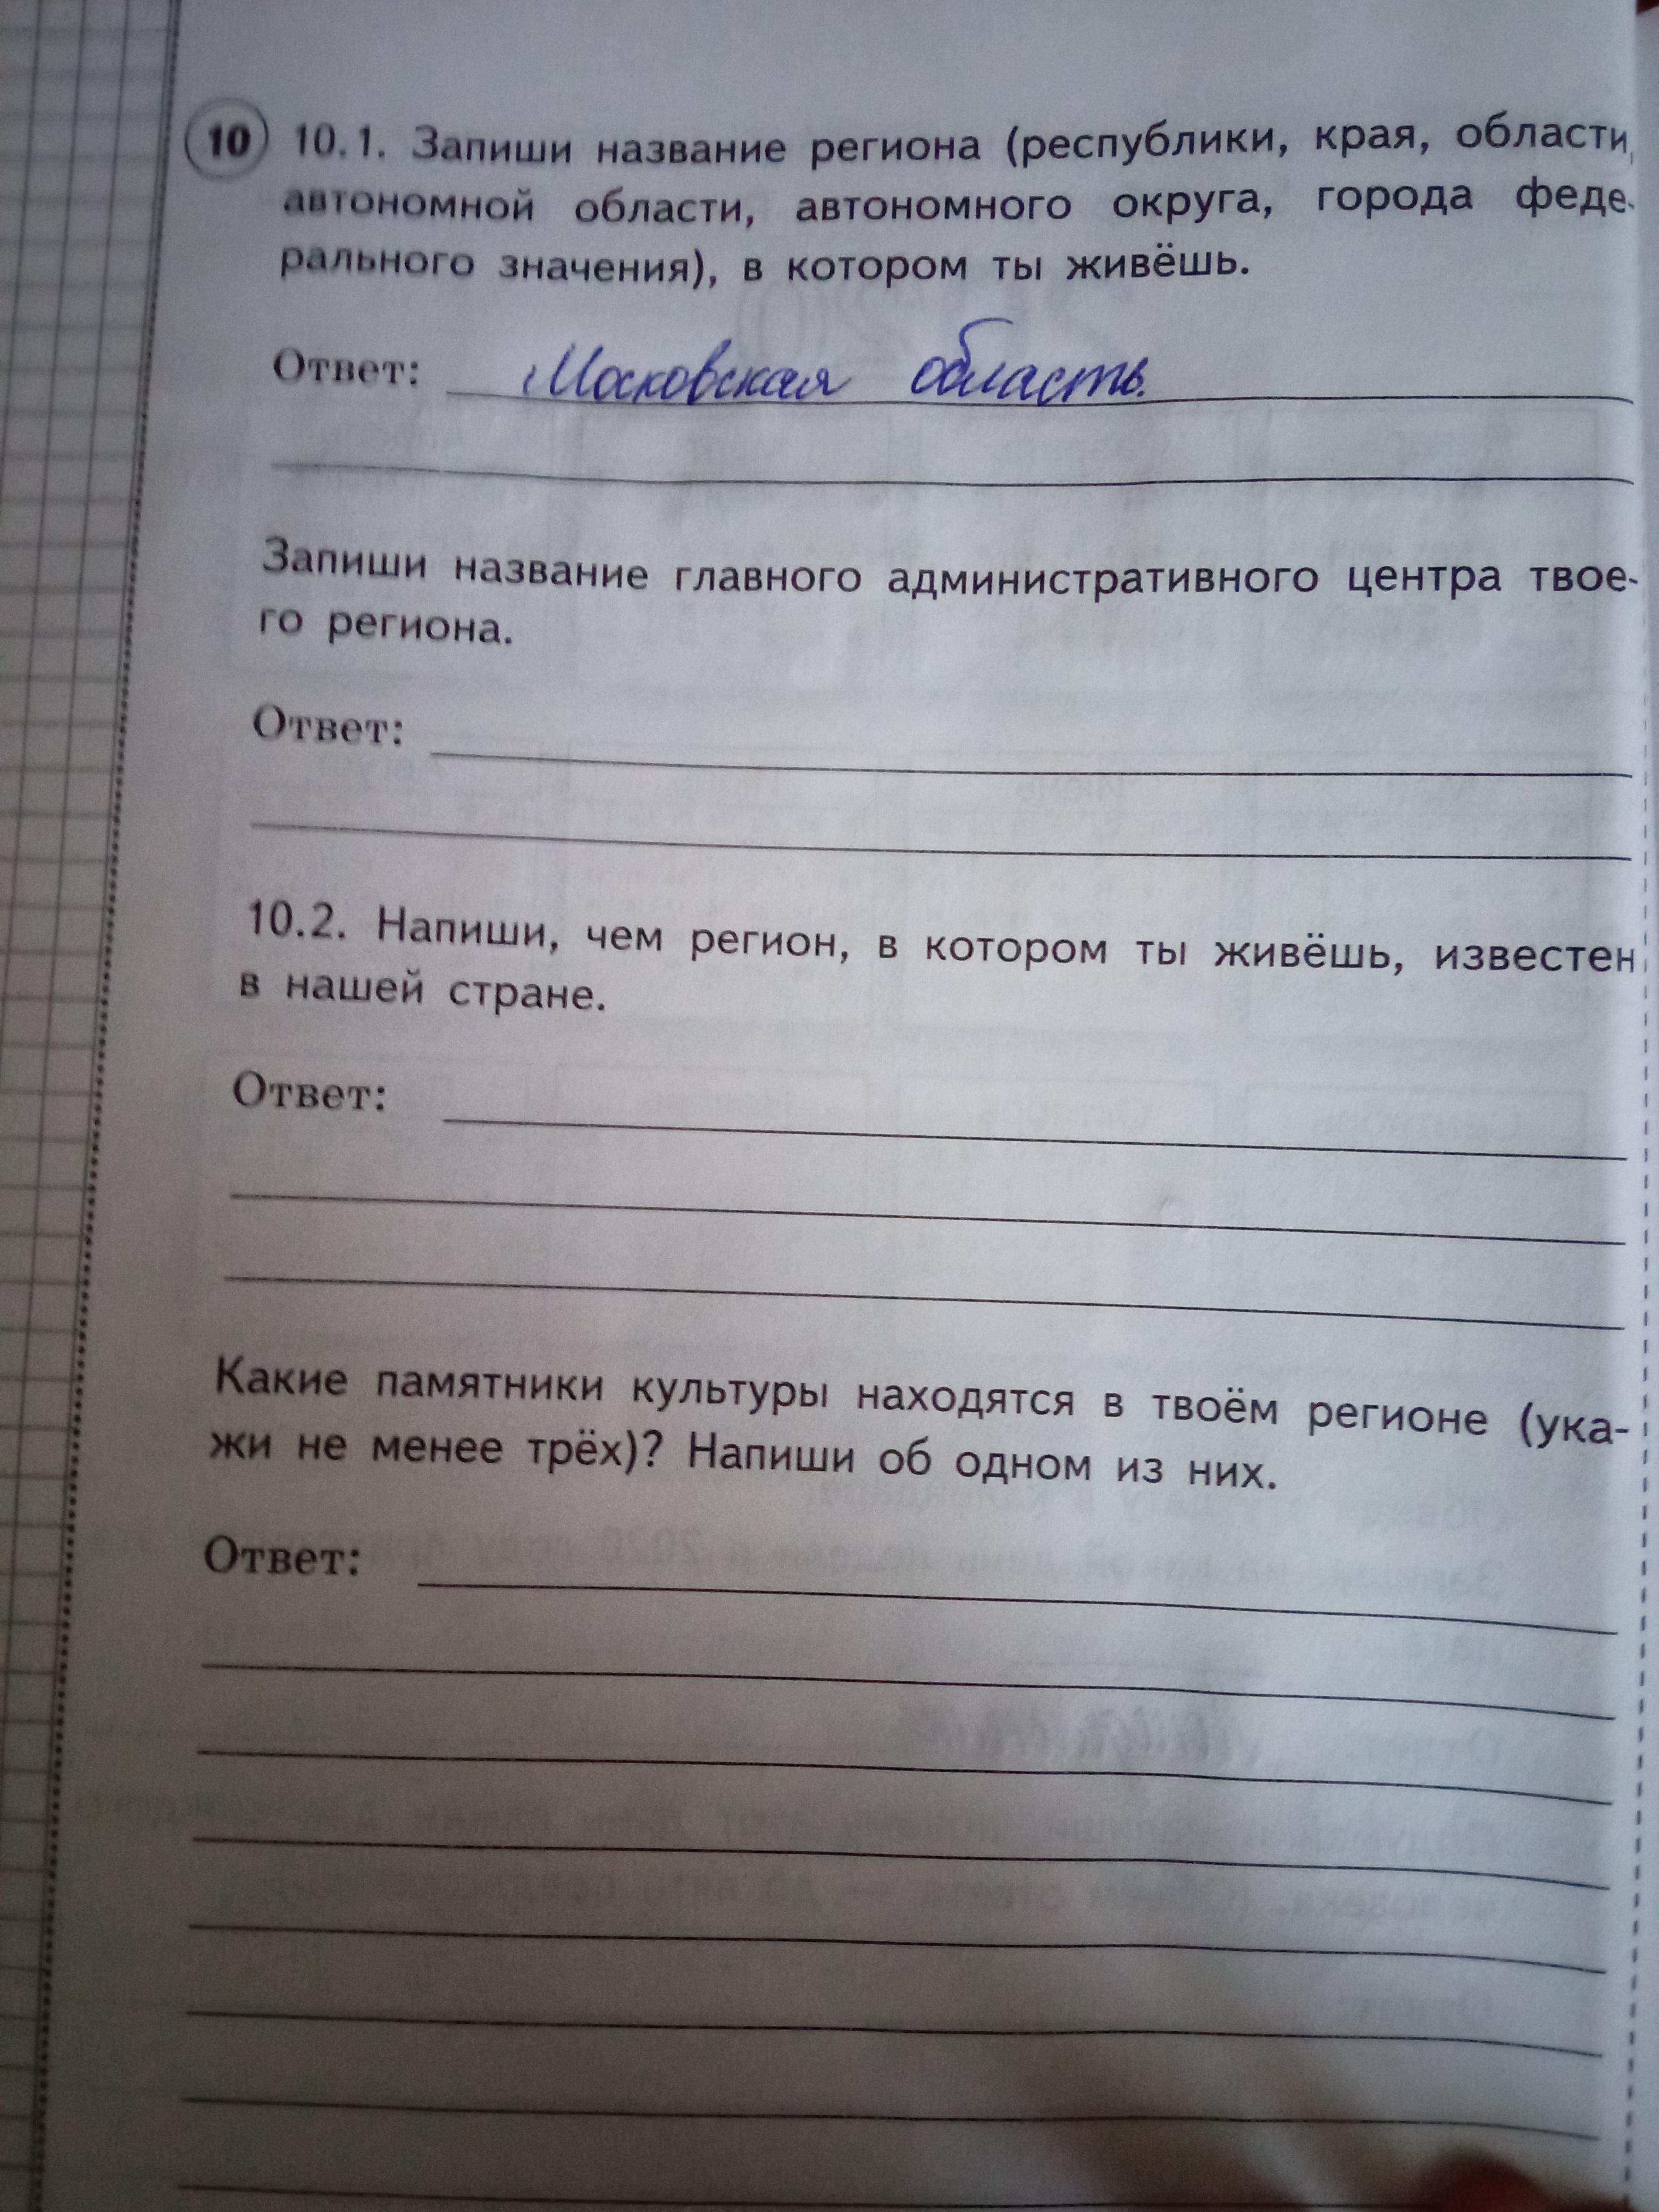 10 10.1. Запиши название региона (республики, края, области,
автономной области, автономного округа, города феде-
рального значения), в котором ты живёшь.
Ответ: Московская область.
Запиши название главного административного центра твое-
го региона.
Ответ:
10.2. Напиши, чем регион, в котором ты живёшь, известен
в нашей стране.
Ответ:
Какие памятники культуры находятся в твоём регионе (ука-
жи не менее трёх)? Напиши об одном из них.
Ответ: